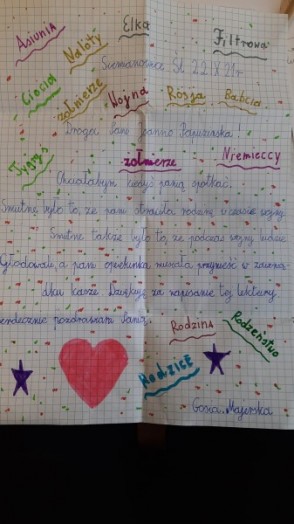 Asiunia Naloty Elka Filtrowa
Siemianowice Śl. 22.IX.21r
Ciocia żołnierze Wojna Róża Babcia
Droga Pani Joanno Papuzińska
Tyfus żołnierze Niemieccy
Chciałabym kiedyś panią spotkać.
Smutne było to, że pani straciła rodzinę w czasie wojny.
Smutne także było to, że podczas wojny ludzie
Głodowali, a pani opiekunka musiała przynosić w
kaszę. Dziękuję za napisanie tej lektury
serdecznie pozdrawiam Panią.
Rodzina Rodzeństwo
Rodzice
Gosia Majerska